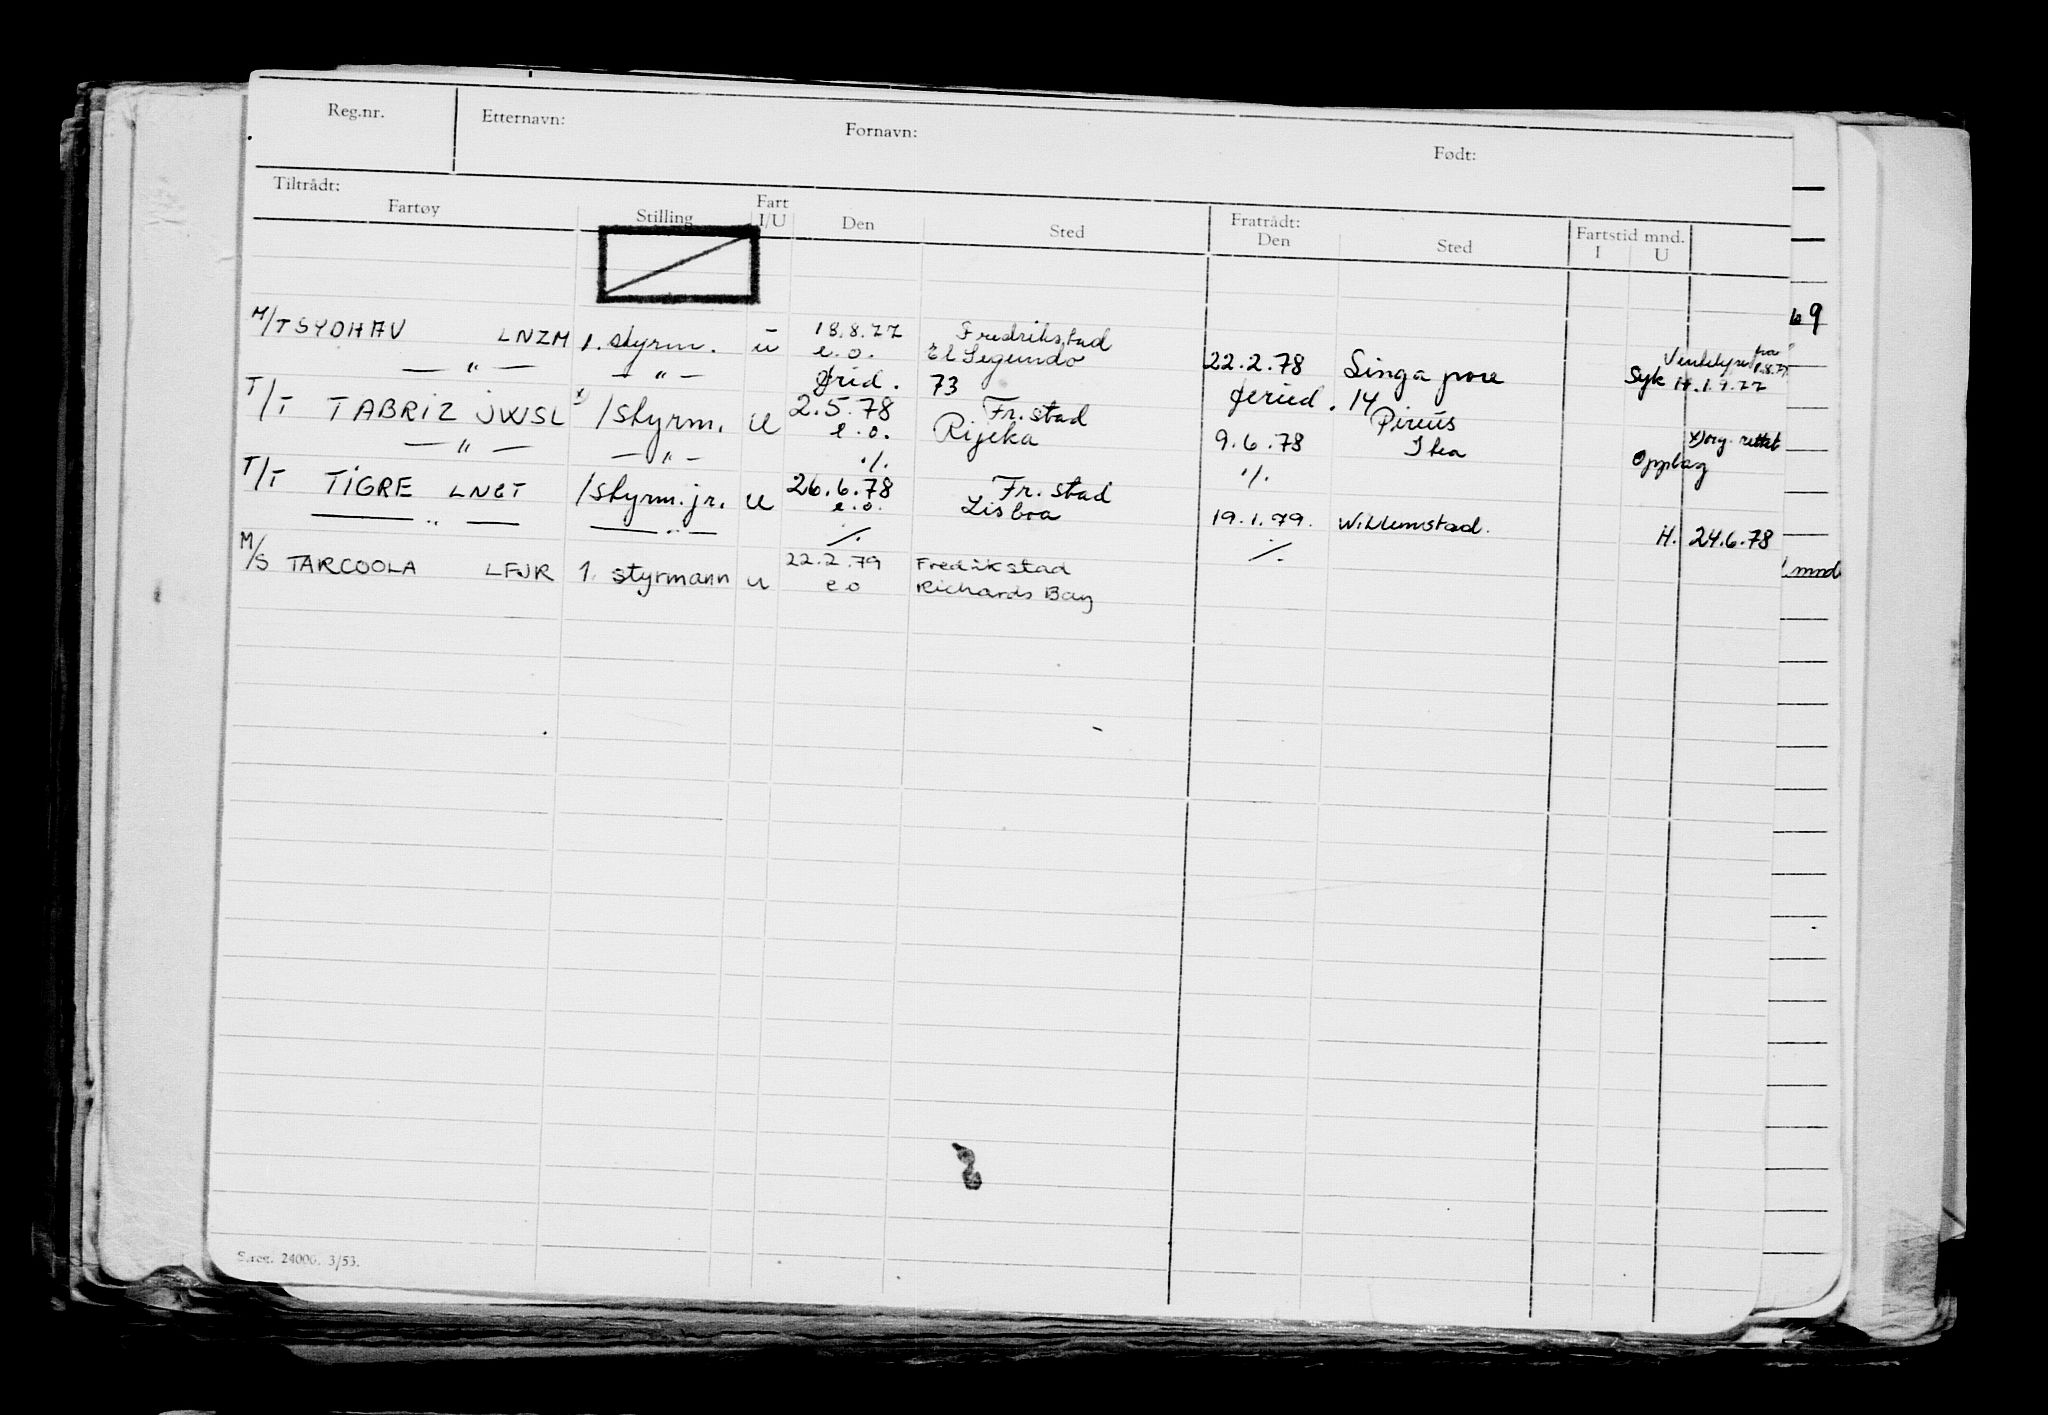 Reg.nr. Etternavn: Fornavn: Født:
Tiltrådt: Fratrådt:
Fartøy Stilling Fart I/U Den Sted Den Sted Fartstid mnd. I U
M/T SYDHAV LNZM 1. styrm. u 18.8.77 Fredrikstad
e.o. El Segundo
— " — — " — frid. 73 22.2.78 Singapore Syk H. 1.9.77
T/T TABRIZ JWSL x) 1 styrm. U 2.5.78 Fr.stad feried. 14 Pireus
e.o. Rijeka
— " — — " — ./. 9.6.78 Itea Opplag x) org. rettet
T/T TIGRE LNCT 1 styrm. jr. U 26.6.78 Fr. stad ./.
e.o. Lisboa
— " — — " — ./. 19.1.79. Willemstad. H. 24.6.78
M/S TARCOOLA LFJR 1. styrmann u 22.2.79 Fredikstad ./.
e o Richards Bay
69
mnd
S.reg. 24000. 3/53.